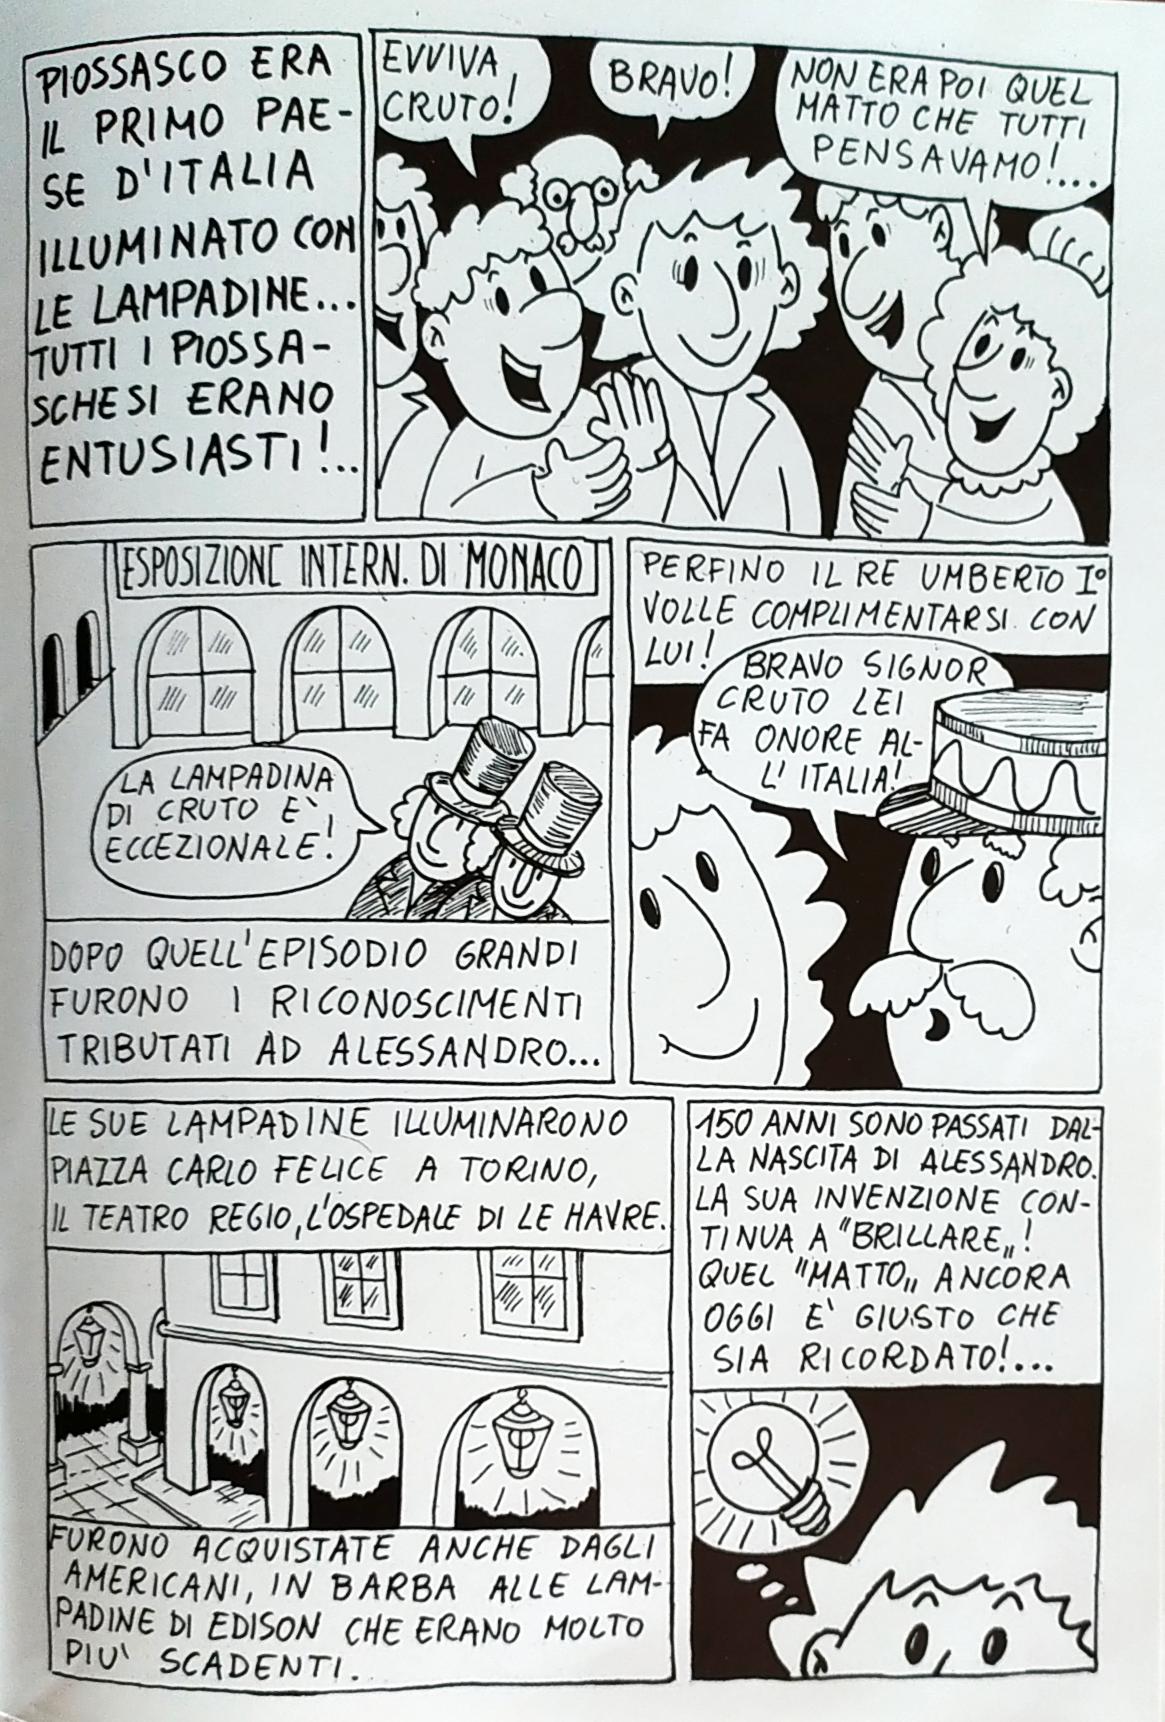 PIOSSASCO ERA
IL PRIMO PAE-
SE D'ITALIA
ILLUMINATO CON
LE LAMPADINE...
TUTTI I PIOSSA-
SCHESI ERANO
ENTUSIASTI!..
EVVIVA
CRUTO!
BRAVO!
NON ERA POI QUEL
MATTO CHE TUTTI
PENSAVAMO!...
ESPOSIZIONE INTERN. DI MONACO
LA LAMPADINA
DI CRUTO E'
ECCEZIONALE!
DOPO QUELL'EPISODIO GRANDI
FURONO I RICONOSCIMENTI
TRIBUTATI AD ALESSANDRO...
PERFINO IL RE UMBERTO I°
VOLLE COMPLIMENTARSI CON
LUI!
BRAVO SIGNOR
CRUTO LEI
FA ONORE AL-
L'ITALIA!
LE SUE LAMPADINE ILLUMINARONO
PIAZZA CARLO FELICE A TORINO,
IL TEATRO REGIO, L'OSPEDALE DI LE HAVRE.
FURONO ACQUISTATE ANCHE DAGLI
AMERICANI, IN BARBA ALLE LAM-
PADINE DI EDISON CHE ERANO MOLTO
PIU' SCADENTI.
150 ANNI SONO PASSATI DAL-
LA NASCITA DI ALESSANDRO.
LA SUA INVENZIONE CON-
TINUA A "BRILLARE„!
QUEL "MATTO„ ANCORA
OGGI E' GIUSTO CHE
SIA RICORDATO!...